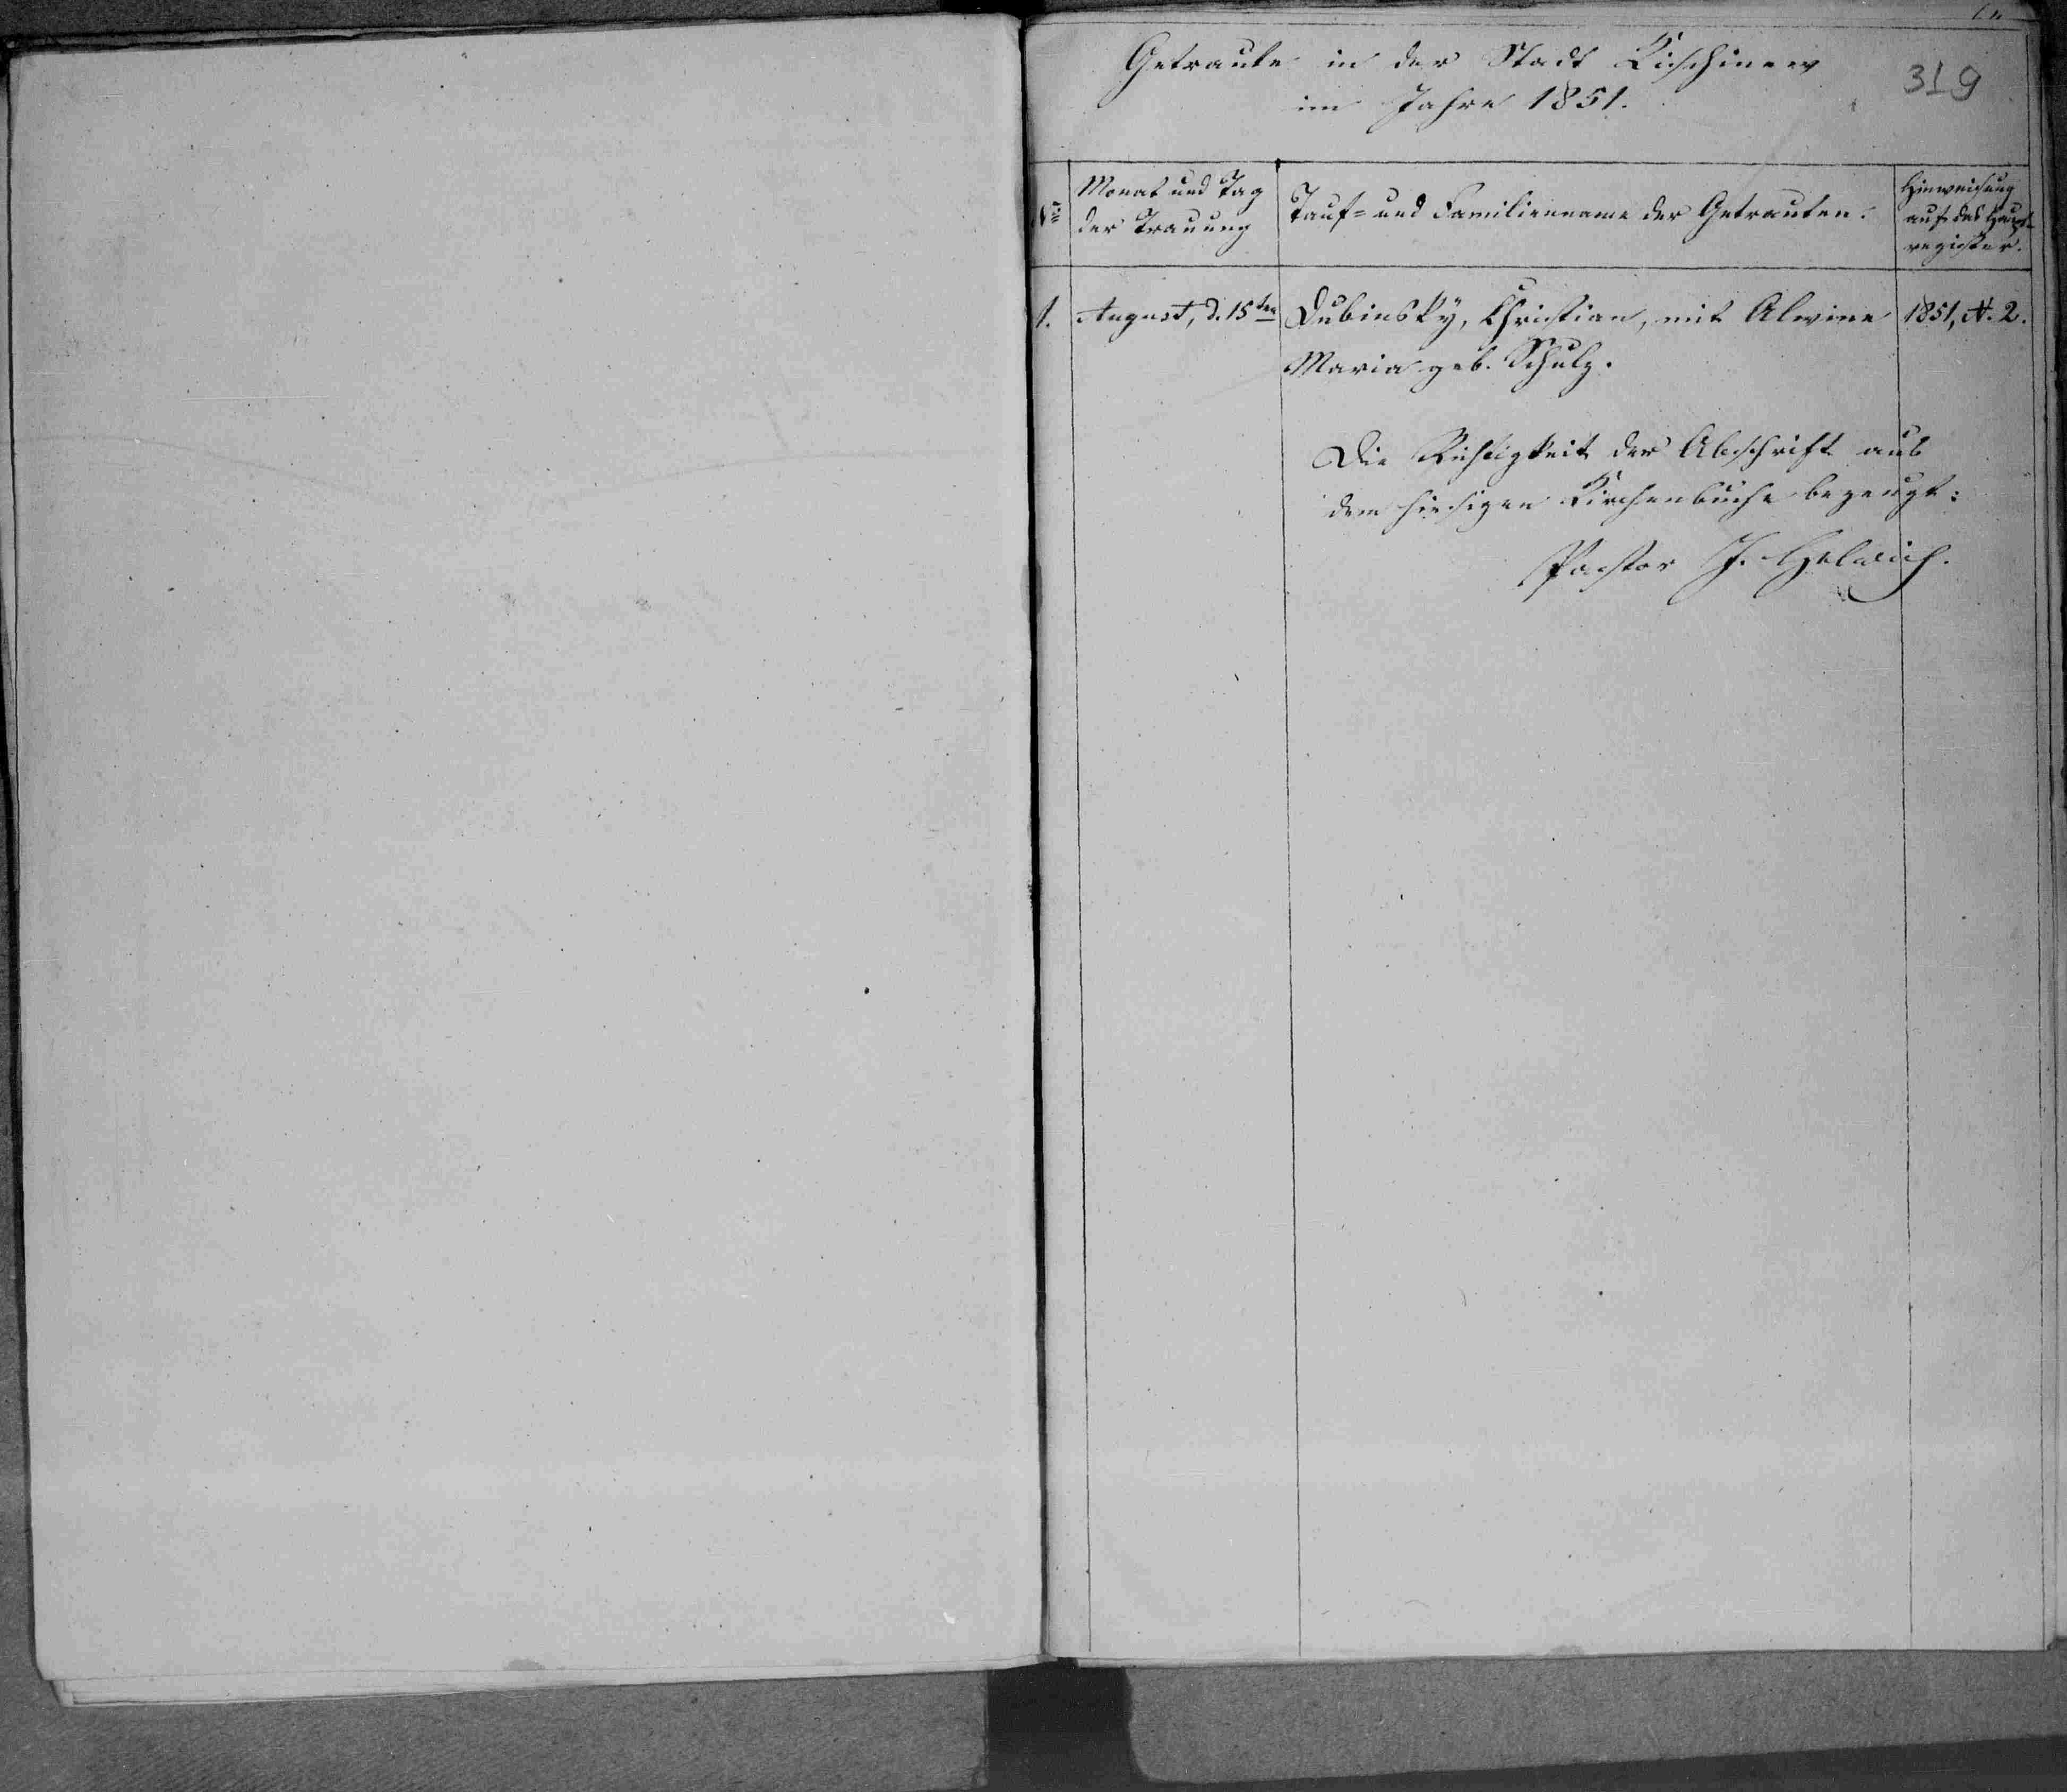 Getraute in der Stadt Kischinew
319
im Jahre 1851.
No
Monat und Tag
der Trauung
Tauf- und Familienname der Getrauten.
Hinweisung
auf das Haupt-
register.
1. August, d. 15ten Dubinsky, Christian, mit Alwine 1851, N. 2.
Maria geb. Schulz.
Die Richtigkeit der Abschrift aus
dem hiesigen Kirchenbuche bezeugt:
Pastor J. Helwich.